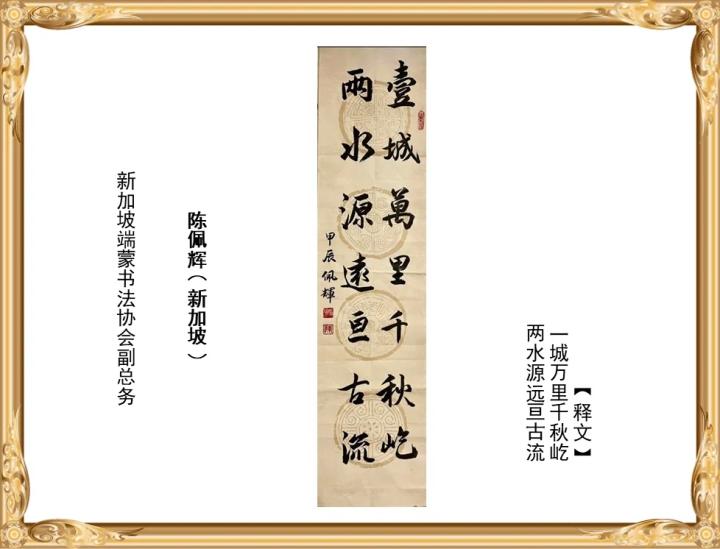 【释文】
一城万里千秋屹
两水源远亘古流
壹城萬里千秋屹
兩水源遠亘古流
甲辰佩輝
陈佩辉（新加坡）
新加坡端蒙书法协会副总务